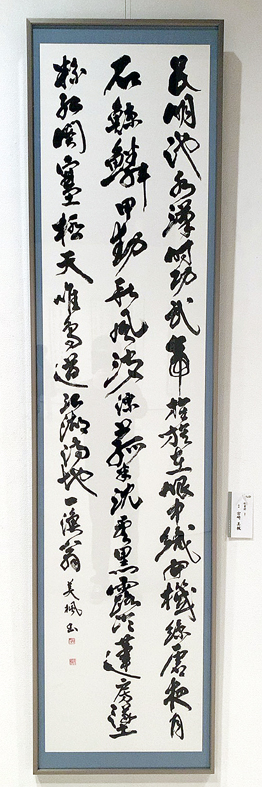 昆明池水漢時功武帝旌旗在眼中織女機絲虚夜月
石鯨鱗甲動秋風波漂菰米沈雲黒露冷蓮房墜
粉紅関塞極天唯鳥道江湖満地一漁翁 美楓